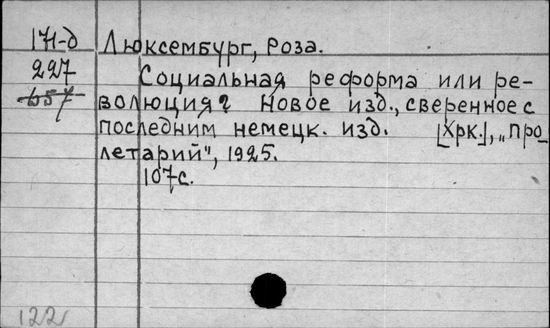 171-д Люксембург, Роза.
227 Социальная реформа или ре-
657 волюция? Новое изд., сверенное с
последним немецк. изд. [Хрк.], „Про_
летарий", 1925.
107с.
122